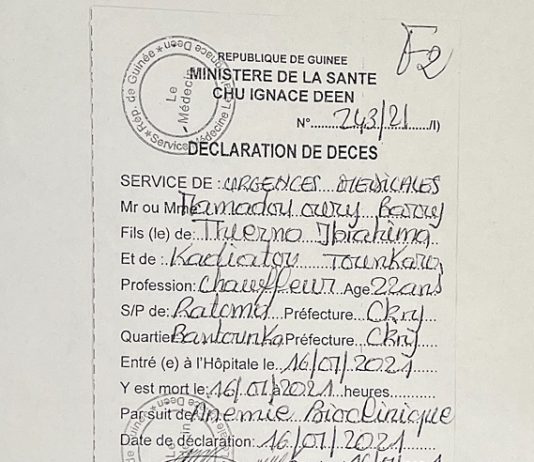 F2
REPUBLIQUE DE GUINEE
MINISTERE DE LA SANTE
CHU IGNACE DEEN
N°.....243/21...../I)
DECLARATION DE DECES
SERVICE DE : URGENCES MEDICALES
Mr ou Mme Mamadou oury Barry
Fils (le) de: Thierno Ibrahima
Et de : Kadiatou Tounkara
Profession: chauffeur Age 22ans
S/P de: Ratoma Préfecture.. Ckry
Quartier Bantounka Préfecture... Ckry
Entré (e) à l'Hôpitale le..16/07/2021
Y est mort le: 16/07/2021..heures
Par suit de Anemie Bioclinique
Date de déclaration: 16/07/2021
Rép. de Guinée
Le Médecin